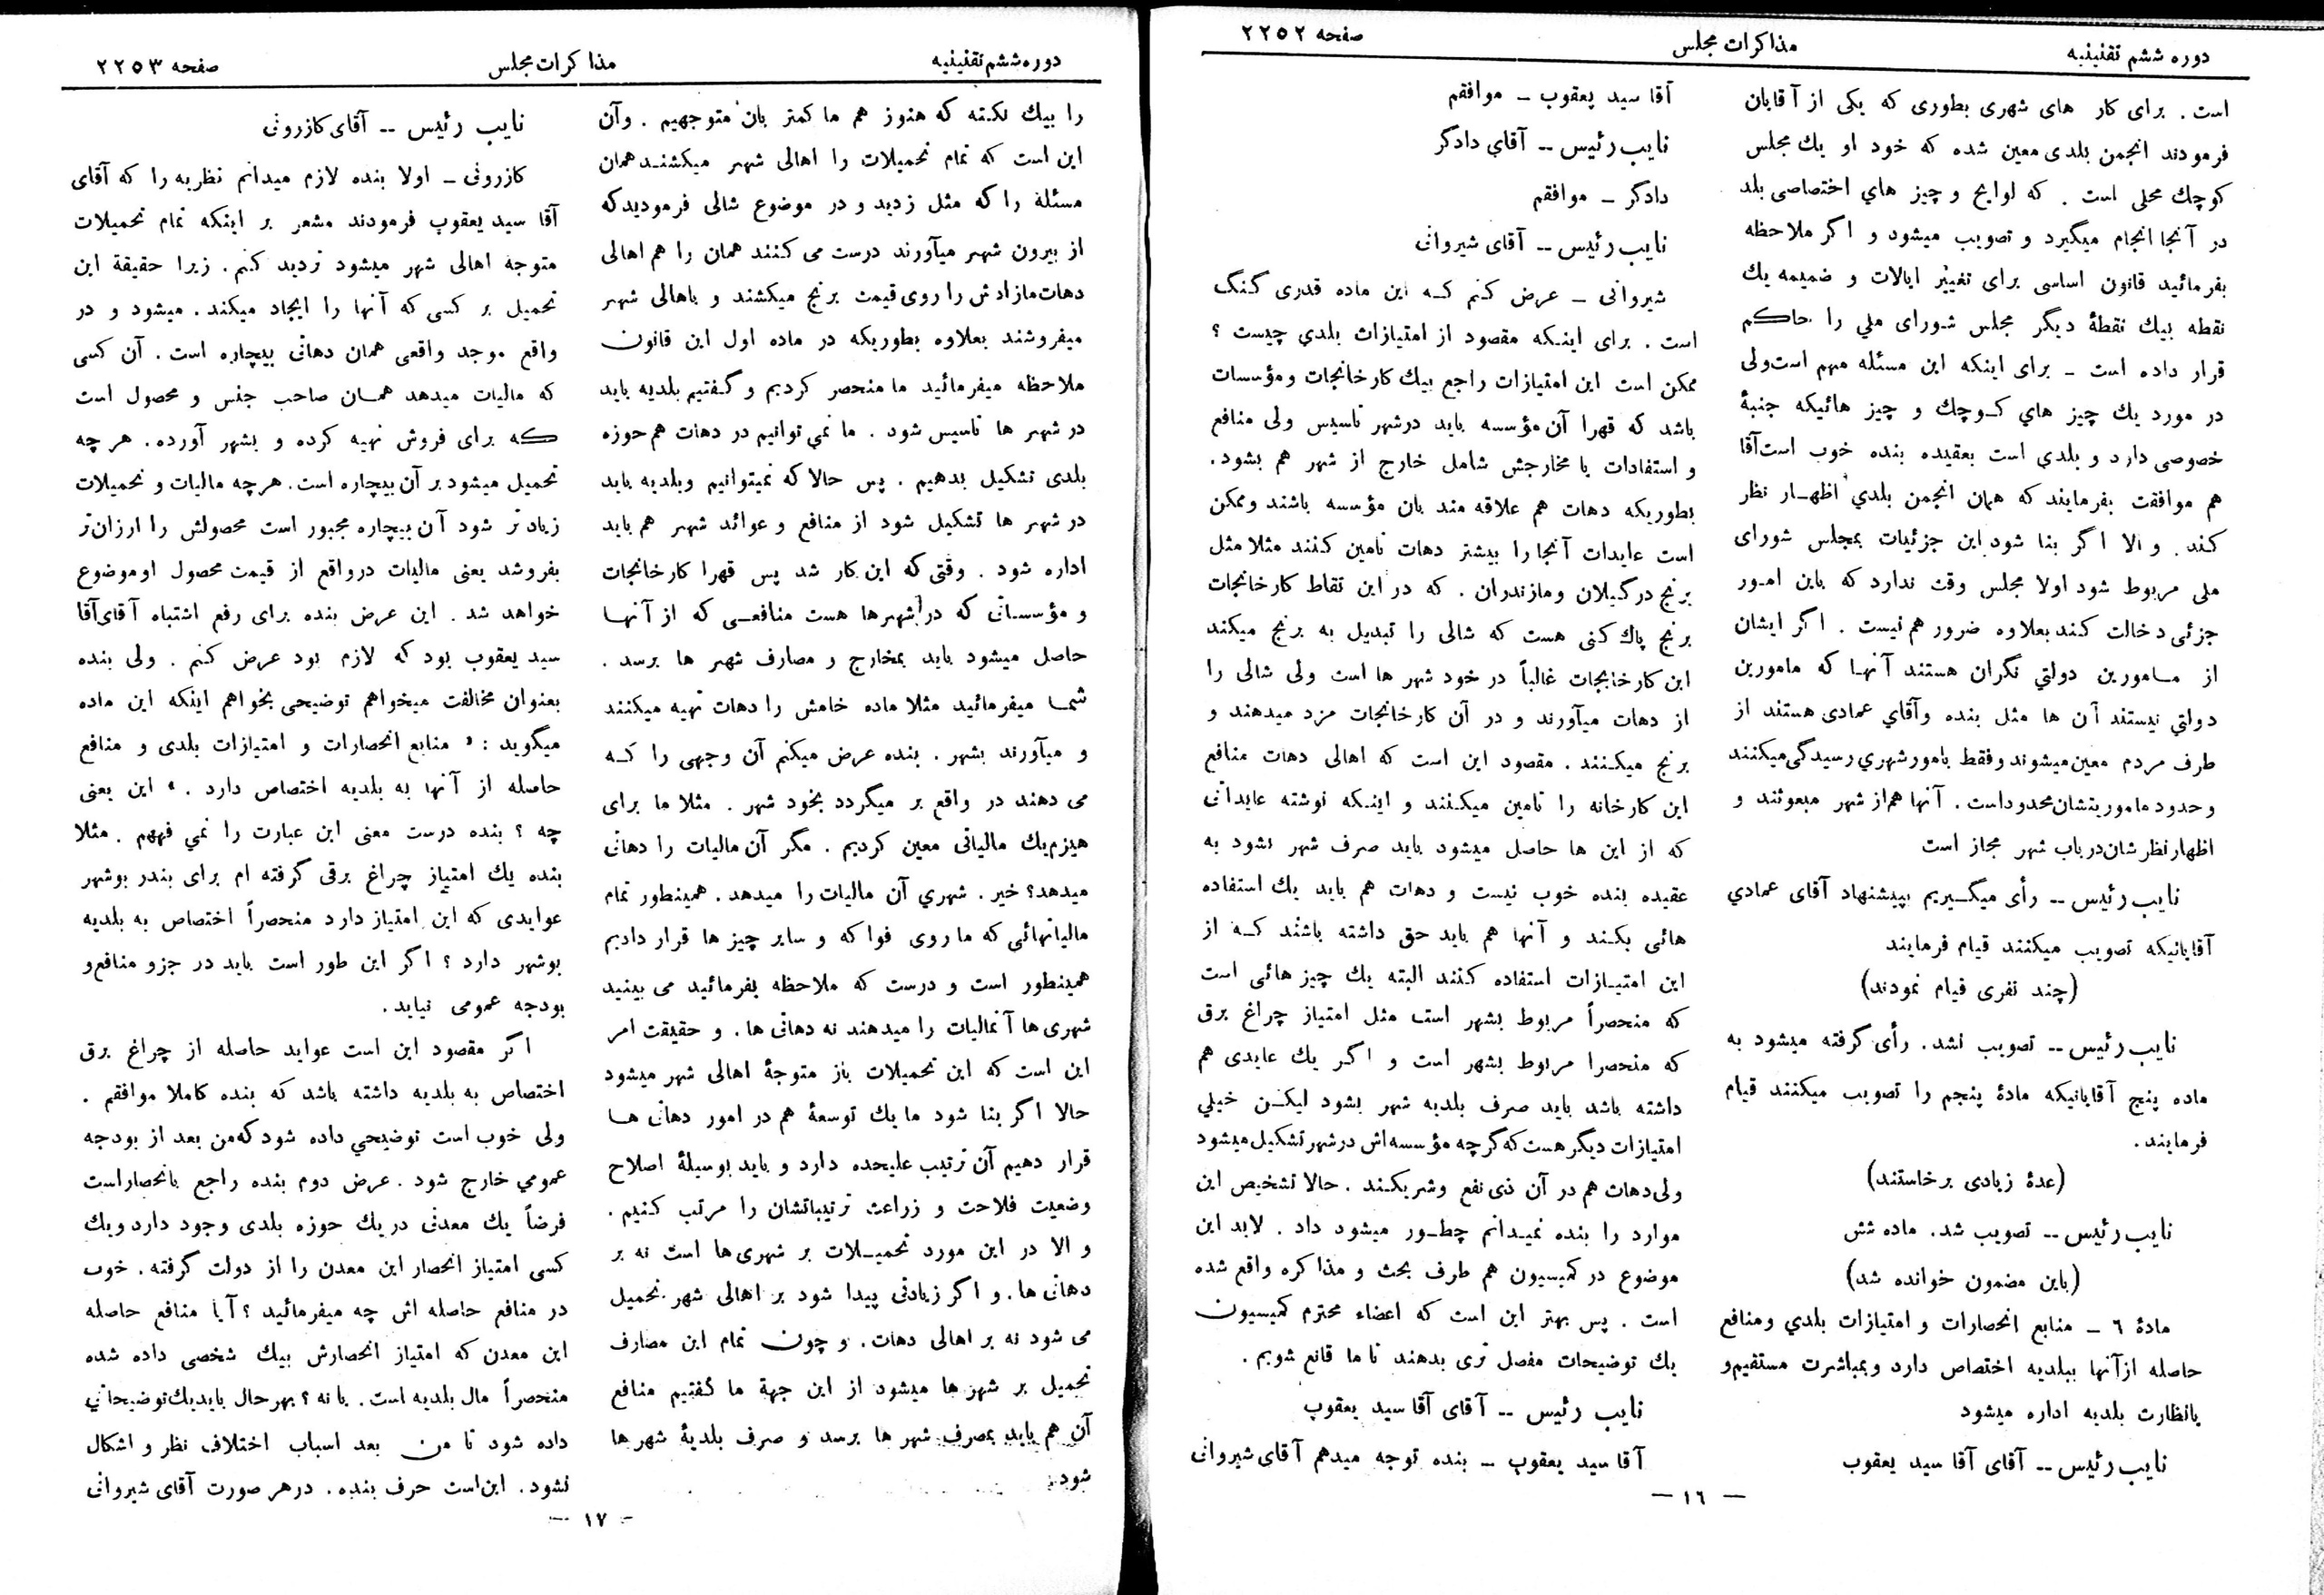 دوره ششم تقنینیه
مذاکرات مجلس
صفحه ۲۲۵۲
است . برای کار های شهری بطوری که یکی از آقایان
فرمودند انجمن بلدی معین شده که خود او یك مجلس
کوچك محلی است . که لوایح و چیز های اختصاصی بلد
در آنجا انجام میگیرد و تصویب میشود و اگر ملاحظه
بفرمائید قانون اساسی برای تغییر ایالات و ضمیمه یك
نقطه بیك نقطهٔ دیگر مجلس شورای ملی را حاکم
قرار داده است ـ برای اینکه این مسئله مهم است ولی
در مورد یك چیز های کوچك و چیز هائیکه جنبهٔ
خصوصی دارد و بلدی است بعقیده بنده خوب است آقا
هم موافقت بفرمایند که همان انجمن بلدی اظهار نظر
کند . و الا اگر بنا شود این جزئیات بمجلس شورای
ملی مربوط شود اولا مجلس وقت ندارد که باین امور
جزئی دخالت کند بعلاوه ضرور هم نیست . اگر ایشان
از مامورین دولتی نگران هستند آنها که مامورین
دولتی نیستند آن ها مثل بنده و آقای عمادی هستند از
طرف مردم معین میشوند و فقط بامور شهری رسیدگی میکنند
و حدود ماموریتشان محدود است . آنها هم از شهر مبعوثند و
اظهار نظرشان در باب شهر مجاز است
نایب رئیس -- رأی میگیریم بپیشنهاد آقای عمادی
آقایانیکه تصویب میکنند قیام فرمایند
(چند نفری قیام نمودند)
نایب رئیس -- تصویب نشد . رأی گرفته میشود به
ماده پنج آقایانیکه مادهٔ پنجم را تصویب میکنند قیام
فرمایند .
(عدهٔ زیادی برخاستند)
نایب رئیس -- تصویب شد . ماده شش
(باین مضمون خوانده شد)
مادهٔ ٦ ـ منابع انحصارات و امتیازات بلدی و منافع
حاصله از آنها ببلدیه اختصاص دارد و بمباشرت مستقیم و
یا نظارت بلدیه اداره میشود
نایب رئیس -- آقای آقا سید یعقوب
آقا سید یعقوب ـ موافقم
نایب رئیس -- آقای دادگر
دادگر ـ موافقم
نایب رئیس -- آقای شیروانی
شیروانی ـ عرض کنم که این ماده قدری گنگ
است . برای اینکه مقصود از امتیازات بلدی چیست ؟
ممکن است این امتیازات راجع بیك کارخانجات و مؤسسات
باشد که قهرا آن مؤسسه باید در شهر تاسیس ولی منافع
و استفادات یا مخارجش شامل خارج از شهر هم بشود .
بطوریکه دهات هم علاقه مند بان مؤسسه باشند و ممکن
است عایدات آنجا را بیشتر دهات تامین کنند مثلا مثل
برنج در گیلان و مازندران . که در این نقاط کارخانجات
برنج پاك کنی هست که شالی را تبدیل به برنج میکند
این کارخانجات غالباً در خود شهر ها است ولی شالی را
از دهات میآورند و در آن کارخانجات مزد میدهند و
برنج میکنند . مقصود این است که اهالی دهات منافع
این کارخانه را تامین میکنند و اینکه نوشته عایداتی
که از این ها حاصل میشود باید صرف شهر نشود به
عقیده بنده خوب نیست و دهات هم باید یك استفاده
هائی بکند و آنها هم باید حق داشته باشند که از
این امتیازات استفاده کنند البته یك چیز هائی است
که منحصراً مربوط بشهر است مثل امتیاز چراغ برق
که منحصرا مربوط بشهر است و اگر یك عایدی هم
داشته باشد باید صرف بلدیه شهر بشود لیکن خیلی
امتیازات دیگر هست که گرچه مؤسسه اش در شهر تشکیل میشود
ولی دهات هم در آن ذی نفع و شریکند . حالا تشخیص این
موارد را بنده نمیدانم چطور میشود داد . لابد این
موضوع در کمیسیون هم طرف بحث و مذاکره واقع شده
است . پس بهتر این است که اعضاء محترم کمیسیون
یك توضیحات مفصل تری بدهند تا ما قانع شویم .
نایب رئیس -- آقای آقا سید یعقوب
آقا سید یعقوب -- بنده توجه میدهم آقای شیروانی
— ١٦ —
دوره ششم تقنینیه
مذاکرات مجلس
صفحه ۲۲۵۳
را بیك نکته که هنوز هم ما کمتر بان متوجهیم . و آن
این است که تمام تحمیلات را اهالی شهر میکشند همان
مسئلهٔ را که مثل زدید و در موضوع شالی فرمودید که
از بیرون شهر میآورند درست می کنند همان را هم اهالی
دهات مازادش را روی قیمت برنج میکشند و باهالی شهر
میفروشند بعلاوه بطوریکه در ماده اول این قانون
ملاحظه میفرمائید ما منحصر کردیم و گفتیم بلدیه باید
در شهر ها تاسیس شود . ما نمی توانیم در دهات هم حوزه
بلدی تشکیل بدهیم . پس حالا که نمیتوانیم و بلدیه باید
در شهر ها تشکیل شود از منافع و عوائد شهر هم باید
اداره شود . وقتی که این کار شد پس قهرا کارخانجات
و مؤسساتی که در شهرها هست منافعی که از آنها
حاصل میشود باید بمخارج و مصارف شهر ها برسد .
شما میفرمائید مثلا ماده خامش را دهات تهیه میکنند
و میآورند بشهر . بنده عرض میکنم آن وجهی را که
می دهند در واقع بر میگردد بخود شهر . مثلا ما برای
هیزم یك مالیاتی معین کردیم . مگر آن مالیات را دهاتی
میدهد؟ خیر . شهری آن مالیات را میدهد . همینطور تمام
مالیاتهائی که ما روی فواکه و سایر چیز ها قرار دادیم
همینطور است و درست که ملاحظه بفرمائید می بینید
شهری ها آنمالیات را میدهند نه دهاتی ها . و حقیقت امر
این است که این تحمیلات باز متوجهٔ اهالی شهر میشود
حالا اگر بنا شود ما یك توسعهٔ هم در امور دهاتی ها
قرار دهیم آن ترتیب علیحده دارد و باید بوسیلهٔ اصلاح
وضعیت فلاحت و زراعت ترتیباتشان را مرتب کنیم .
و الا در این مورد تحمیلات بر شهری ها است نه بر
دهاتی ها . و اگر زیادتی پیدا شود بر اهالی شهر تحمیل
می شود نه بر اهالی دهات . و چون تمام این مصارف
تحمیل بر شهر ها میشود از این جهة ما گفتیم منافع
آن هم باید بمصرف شهر ها برسد و صرف بلدیهٔ شهر ها
شود
نایب رئیس -- آقای کازرونی
کازرونی ـ اولا بنده لازم میدانم نظریه را که آقای
آقا سید یعقوب فرمودند مشعر بر اینکه تمام تحمیلات
متوجه اهالی شهر میشود تردید کنم . زیرا حقیقة این
تحمیل بر کسی که آنها را ایجاد میکند . میشود و در
واقع موجد واقعی همان دهاتی بیچاره است . آن کسی
که مالیات میدهد همان صاحب جنس و محصول است
که برای فروش تهیه کرده و بشهر آورده . هر چه
تحمیل میشود بر آن بیچاره است . هر چه مالیات و تحمیلات
زیاد تر شود آن بیچاره مجبور است محصولش را ارزان تر
بفروشد یعنی مالیات در واقع از قیمت محصول او موضوع
خواهد شد . این عرض بنده برای رفع اشتباه آقای آقا
سید یعقوب بود که لازم بود عرض کنم . ولی بنده
بعنوان مخالفت میخواهم توضیحی بخواهم اینکه این ماده
میگوید : « منابع انحصارات و امتیازات بلدی و منافع
حاصله از آنها به بلدیه اختصاص دارد . » این یعنی
چه ؟ بنده درست معنی این عبارت را نمی فهمم . مثلا
بنده یك امتیاز چراغ برقی گرفته ام برای بندر بوشهر
عوایدی که این امتیاز دارد منحصراً اختصاص به بلدیه
بوشهر دارد ؟ اگر این طور است باید در جزو منافع و
بودجه عمومی نیاید .
اگر مقصود این است عواید حاصله از چراغ برق
اختصاص به بلدیه داشته باشد که بنده کاملا موافقم .
ولی خوب است توضیحی داده شود که من بعد از بودجه
عمومی خارج شود . عرض دوم بنده راجع بانحصار است
فرضاً یك معدنی در یك حوزه بلدی وجود دارد و یك
کسی امتیاز انحصار این معدن را از دولت گرفته . خوب
در منافع حاصله اش چه میفرمائید ؟ آیا منافع حاصله
این معدن که امتیاز انحصارش بیك شخصی داده شده
منحصراً مال بلدیه است . یا نه ؟ بهر حال باید یك توضیحاتی
داده شود تا من بعد اسباب اختلاف نظر و اشکال
نشود . این است حرف بنده . در هر صورت آقای شیروانی
— ١٧ —